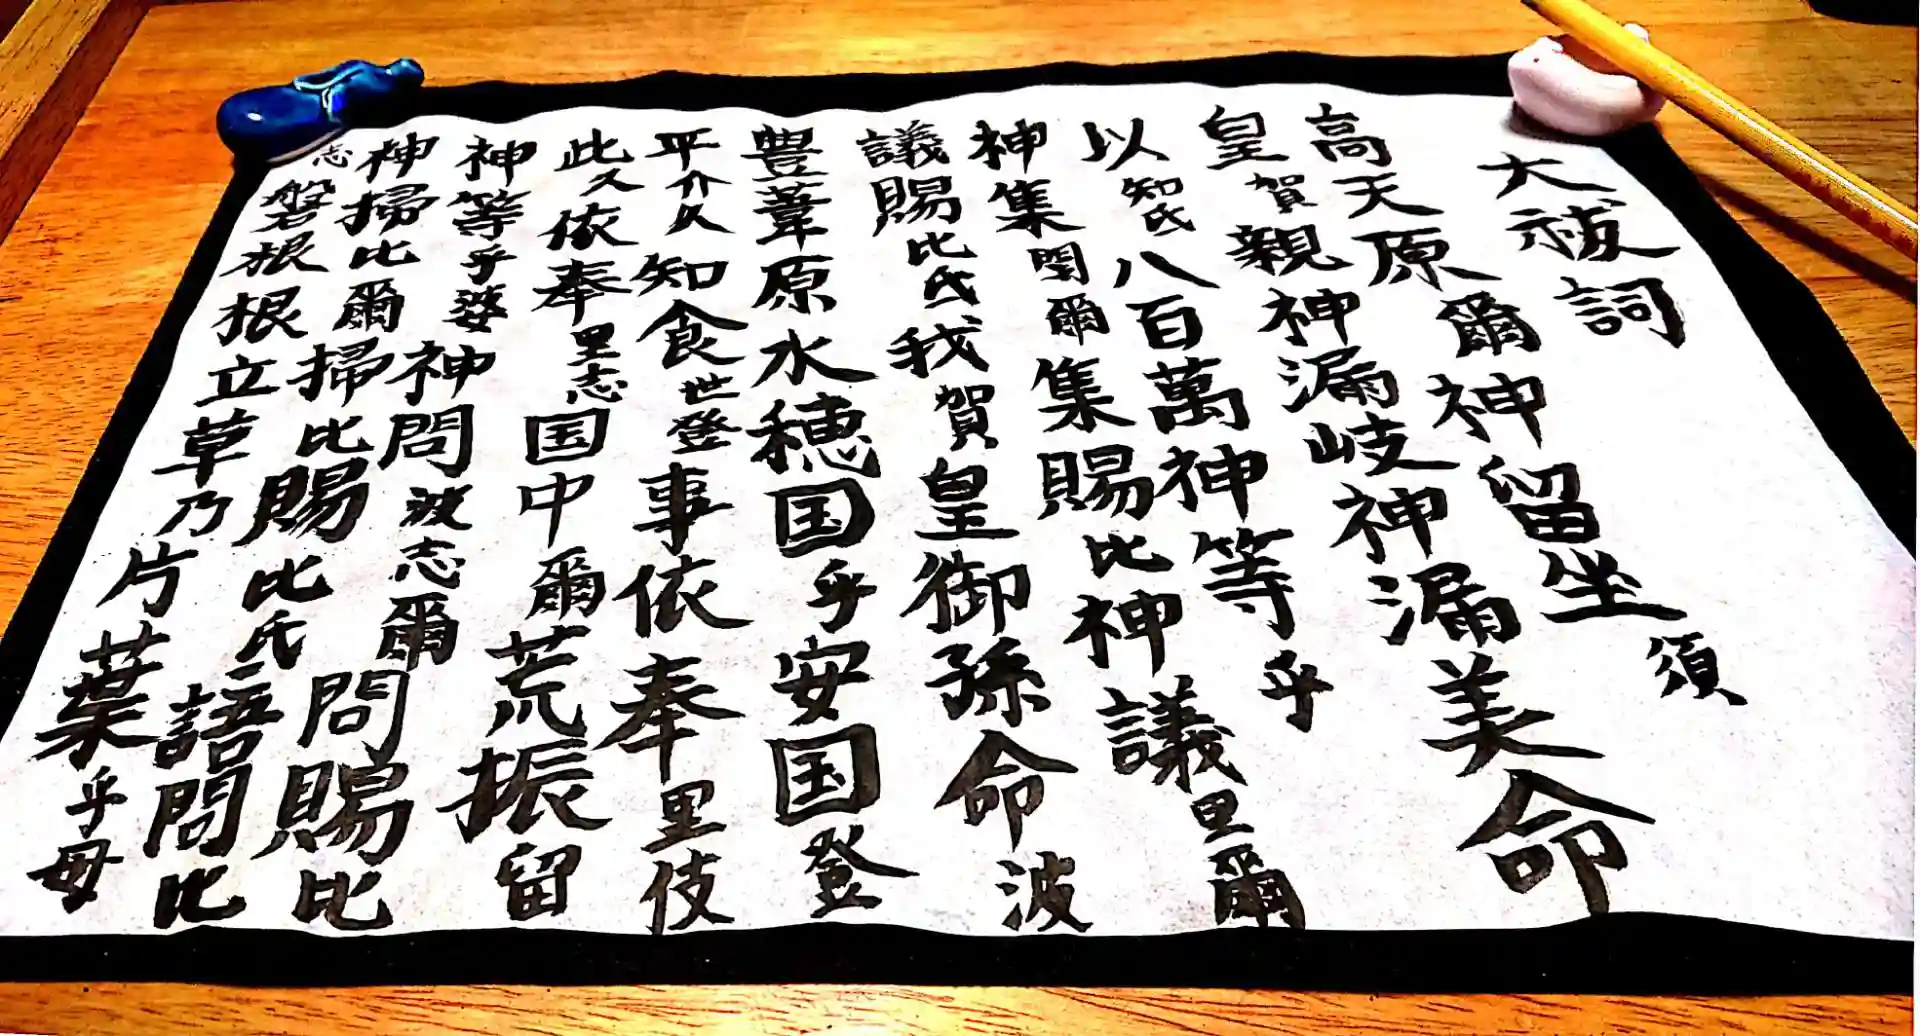 大祓詞
高天原爾神留坐須
皇賀親神漏岐神漏美命
以知氐八百萬神等乎
神集閇爾集賜比神議里爾
議賜比氐我賀皇御孫命波
豊葦原水穂国乎安国登
平介久知食世登事依奉里伎
此久依奉里志国中爾荒振留
神等乎婆神問波志爾問賜比
神掃比爾掃比賜比氐語問比
志磐根根立草乃片葉乎母